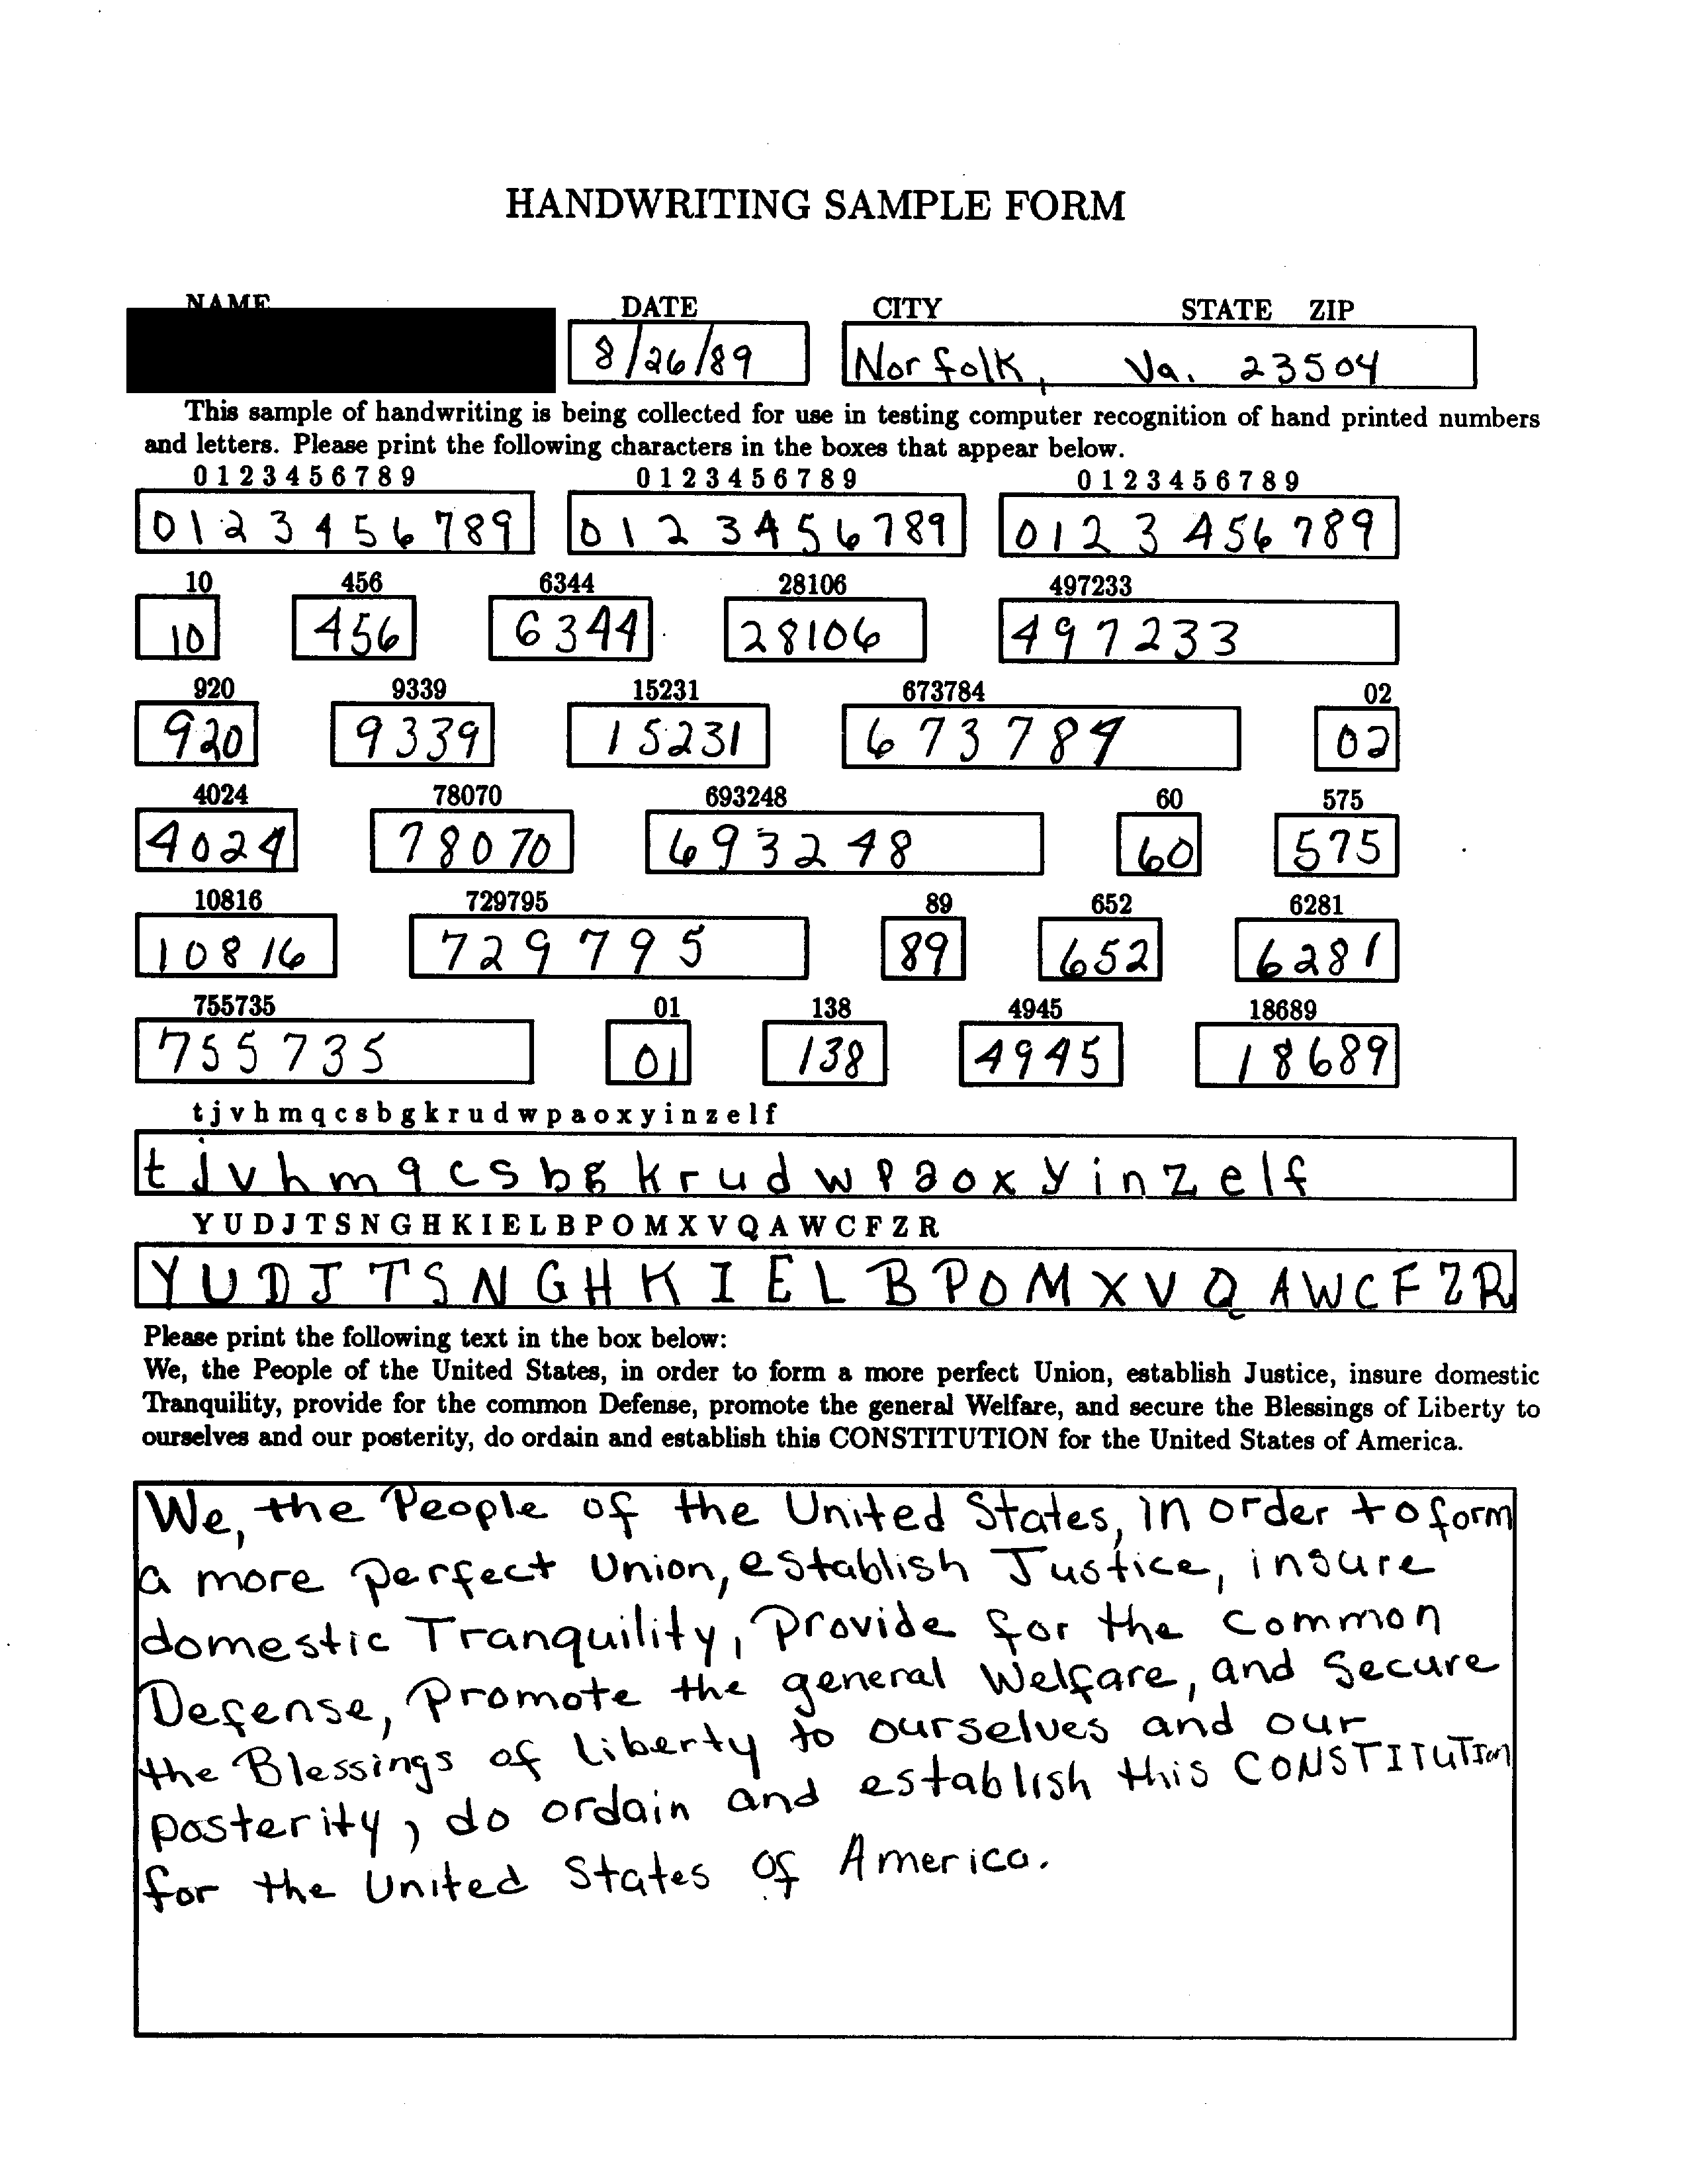 HANDWRITING SAMPLE FORM
NAME DATE CITY STATE ZIP
8/26/89 Norfolk, Va. 23504
This sample of handwriting is being collected for use in testing computer recognition of hand printed numbers
and letters. Please print the following characters in the boxes that appear below.
0 1 2 3 4 5 6 7 8 9 0 1 2 3 4 5 6 7 8 9 0 1 2 3 4 5 6 7 8 9
0 1 2 3 4 5 6 7 8 9 0 1 2 3 4 5 6 7 8 9 0 1 2 3 4 5 6 7 8 9
10 456 6344 28106 497233
10 456 6344 28106 497233
920 9339 15231 673784 02
920 9339 15231 673784 02
4024 78070 693248 60 575
4024 78070 693248 60 575
10816 729795 89 652 6281
10816 729795 89 652 6281
755735 01 138 4945 18689
755735 01 138 4945 18689
t j v h m q c s b g k r u d w p a o x y i n z e l f
t j v h m q c s b g k r u d w p a o x y i n z e l f
Y U D J T S N G H K I E L B P O M X V Q A W C F Z R
Y U D J T S N G H K I E L B P O M X V Q A W C F Z R
Please print the following text in the box below:
We, the People of the United States, in order to form a more perfect Union, establish Justice, insure domestic
Tranquility, provide for the common Defense, promote the general Welfare, and secure the Blessings of Liberty to
ourselves and our posterity, do ordain and establish this CONSTITUTION for the United States of America.
We, the People of the United States, in order to form
a more perfect Union, establish Justice, insure
domestic Tranquility, Provide for the common
Defense, Promote the general Welfare, and Secure
the Blessings of liberty to ourselves and our
posterity, do ordain and establish this CONSTITUTION
for the United States of America.